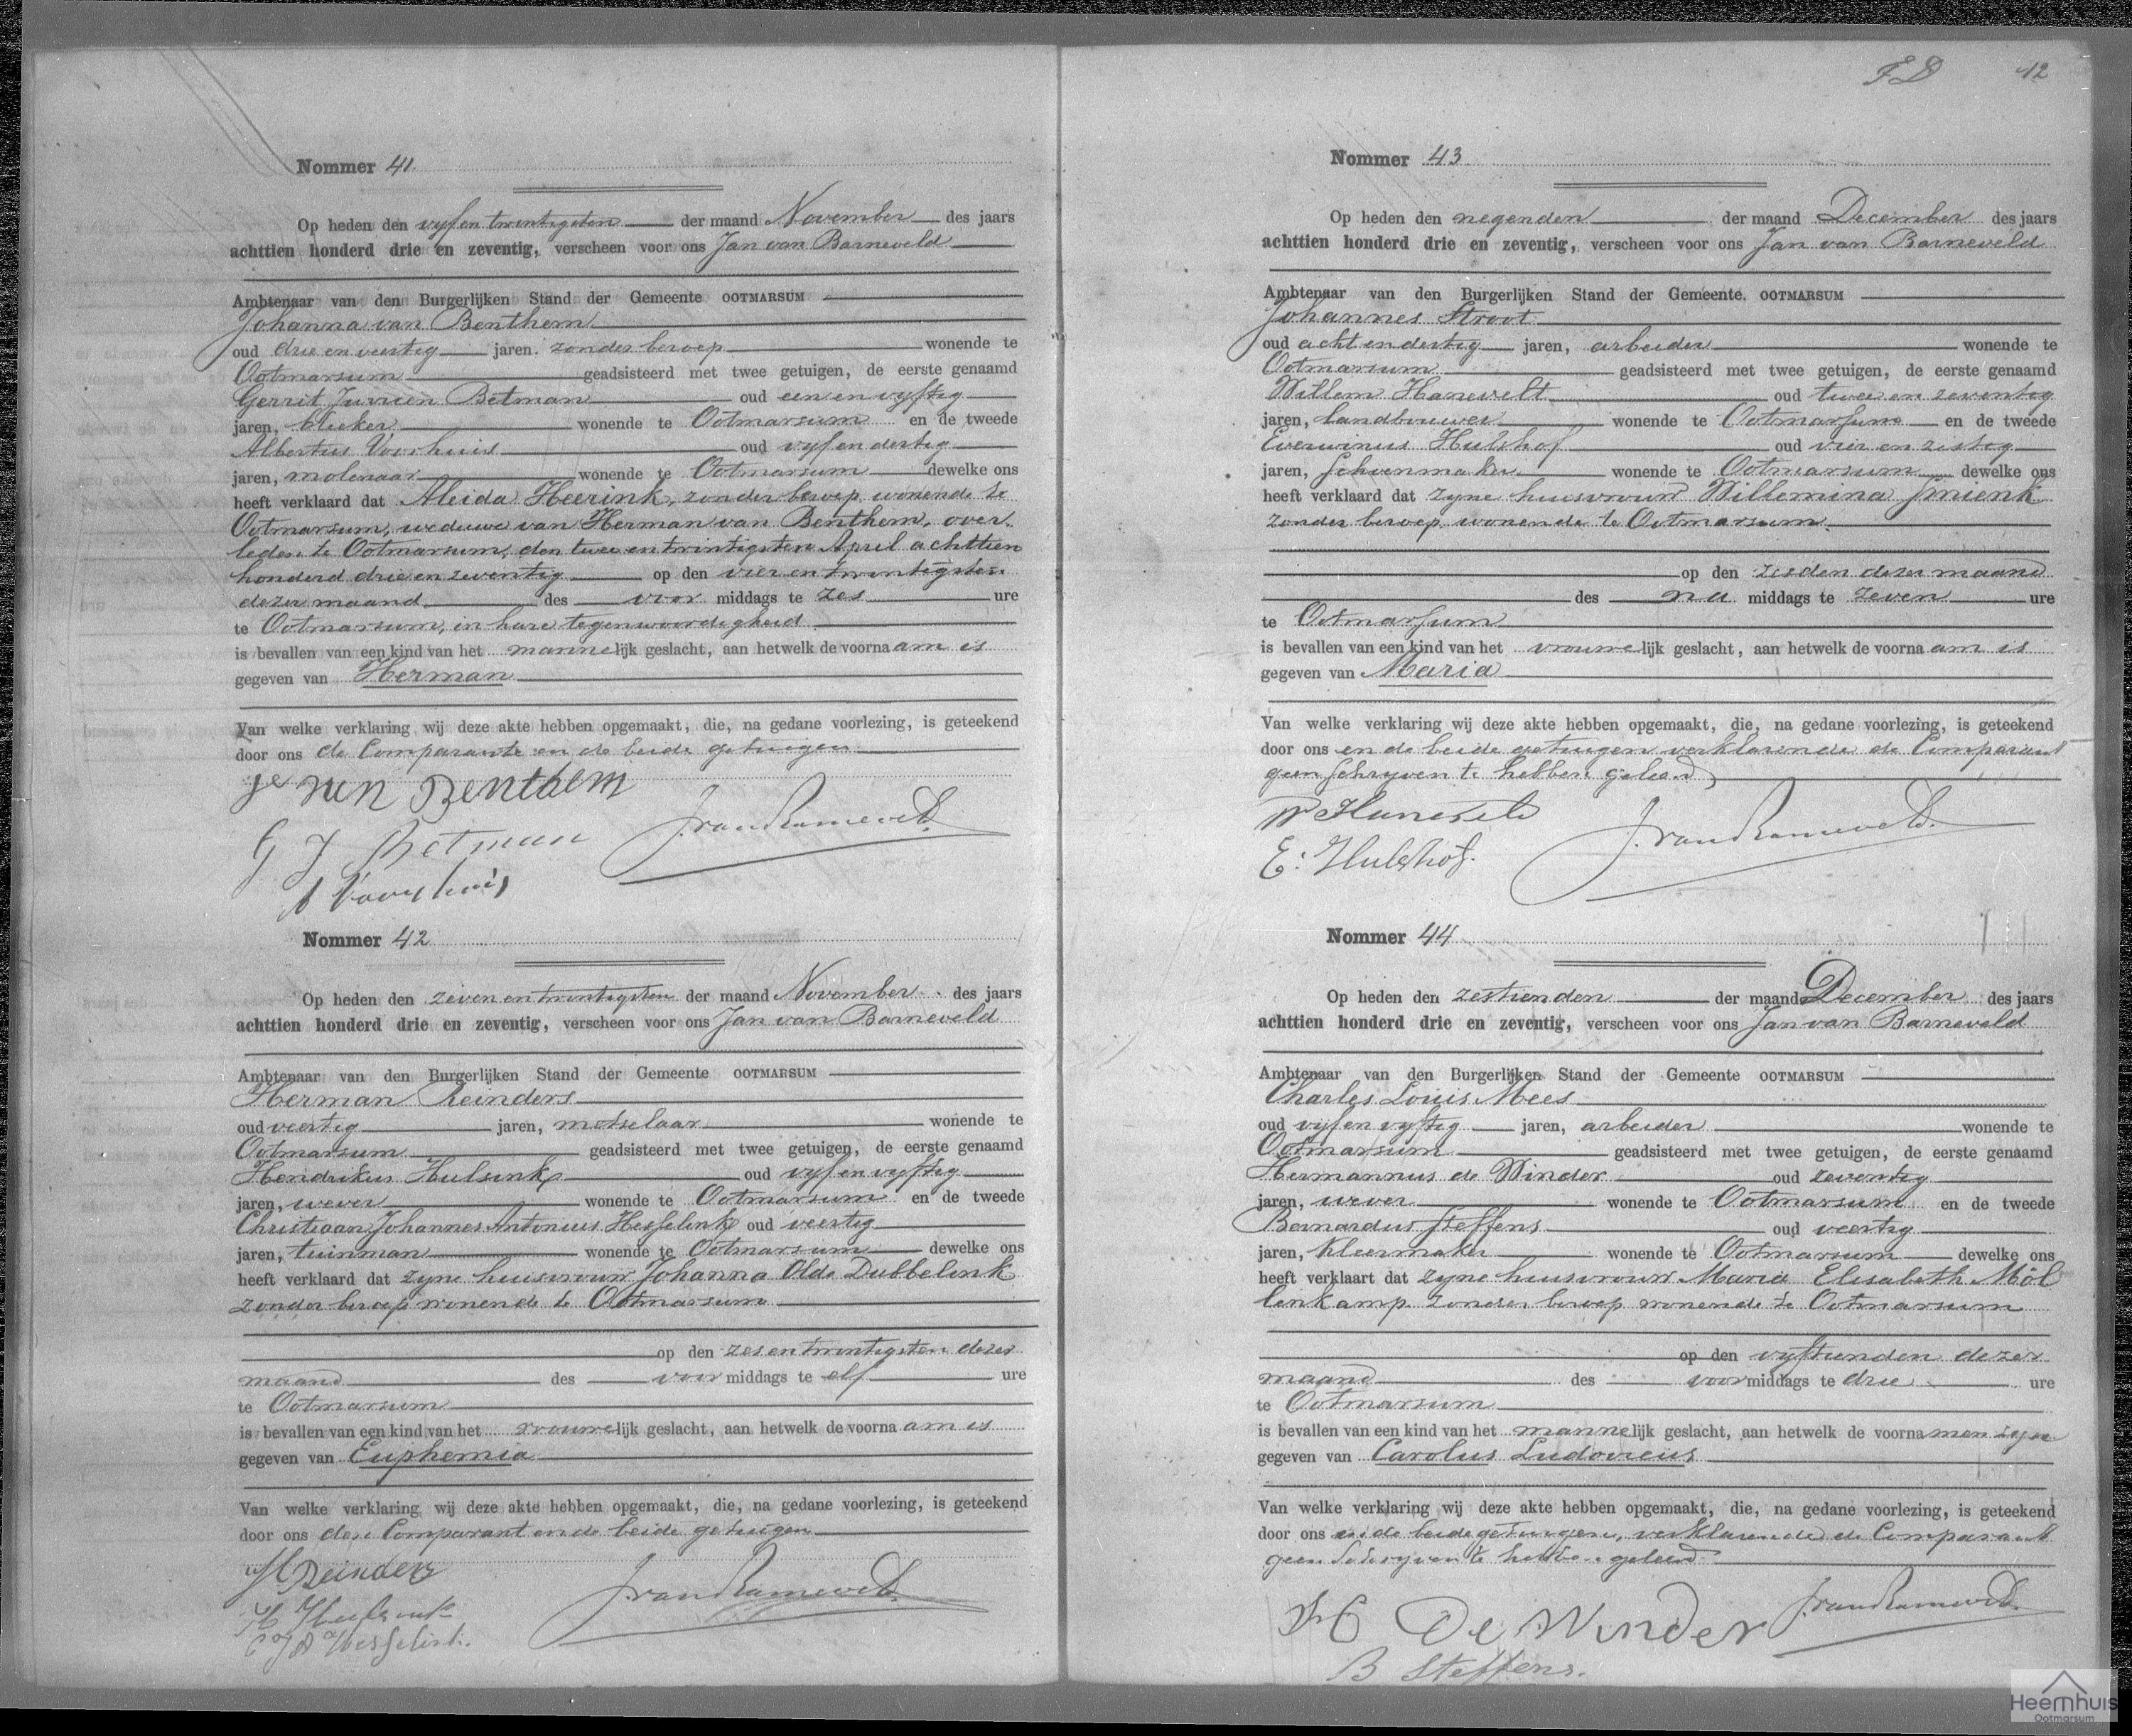 Nommer 41.
Op heden den vyf en twintigsten der maand November des jaars
achttien honderd drie en zeventig, verscheen voor ons Jan van Barneveld
Ambtenaar van den Burgerlijken Stand der Gemeente OOTMARSUM
Johanna van Benthem
oud drie en veertig jaren. zonder beroep wonende te
Ootmarsum geadsisteerd met twee getuigen, de eerste genaamd
Gerrit Jurrien Betman oud een en vyftig
jaren, bleeker wonende te Ootmarsum en de tweede
Albertus Voorhuis oud vyf en dertig
jaren, molenaar wonende te Ootmarsum dewelke ons
heeft verklaard dat Aleida Heerink, zonder beroep wonende te
Ootmarsum, weduwe van Herman van Benthem, over-
leden te Ootmarsum, den twee en twintigsten April achttien
honderd drie en zeventig op den vier en twintigsten
dezer maand des voor middags te zes ure
te Ootmarsum, in hare tegenwoordigheid
is bevallen van een kind van het mannelijk geslacht, aan hetwelk de voornaam is
gegeven van Herman
Van welke verklaring wij deze akte hebben opgemaakt, die, na gedane voorlezing, is geteekend
door ons de Comparante en de beide getuigen
van Benthem
G J Betman J. van Barneveld.
A Voorhuis
Nommer 42
Op heden den zeven en twintigsten der maand November des jaars
achttien honderd drie en zeventig, verscheen voor ons Jan van Barneveld
Ambtenaar van den Burgerlijken Stand der Gemeente OOTMARSUM
Herman Reinders
oud veertig jaren, metselaar wonende te
Ootmarsum geadsisteerd met twee getuigen, de eerste genaamd
Hendrikus Hulsink oud vyf en vyftig
jaren, wever wonende te Ootmarsum en de tweede
Christiaan Johannes Antonius Hesselink oud veertig
jaren, tuinman wonende te Ootmarsum dewelke ons
heeft verklaard dat zyne huisvrouw Johanna Olde Dubbelink
zonder beroep wonende te Ootmarsum
op den zes en twintigsten dezer
maand des voor middags te elf ure
te Ootmarsum
is bevallen van een kind van het vrouwelijk geslacht, aan hetwelk de voornaam is
gegeven van Euphemia
Van welke verklaring wij deze akte hebben opgemaakt, die, na gedane voorlezing, is geteekend
door ons den Comparant en de beide getuigen
H Reinders
J. van Barneveld.
Hesselink.
F D 12
Nommer 43
Op heden den negenden der maand December des jaars
achttien honderd drie en zeventig, verscheen voor ons Jan van Barneveld
Ambtenaar van den Burgerlijken Stand der Gemeente. OOTMARSUM
Johannes Stroot
oud acht en dertig jaren, arbeider wonende te
Ootmarsum geadsisteerd met twee getuigen, de eerste genaamd
Willem Hanevelt oud twee en zeventig
jaren, landbouwer wonende te Ootmarsum en de tweede
Everwinus Hulshof oud vier en zestig
jaren, schoenmaker wonende te Ootmarsum dewelke ons
heeft verklaard dat zyne huisvrouw Willemina Smienk
zonder beroep wonende te Ootmarsum.
op den zesden dezer maand
des na middags te zeven ure
te Ootmarsum
is bevallen van een kind van het vrouwelijk geslacht, aan hetwelk de voornaam is
gegeven van Maria
Van welke verklaring wij deze akte hebben opgemaakt, die, na gedane voorlezing, is geteekend
door ons en de beide getuigen verklarende de Comparant
geen schryven te hebben geleerd
W Hanevelt J. van Barneveld.
E: Hulshof.
Nommer 44
Op heden den zestienden der maand December des jaars
achttien honderd drie en zeventig, verscheen voor ons Jan van Barneveld
Ambtenaar van den Burgerlijken Stand der Gemeente OOTMARSUM
Charles Louis Mees
oud vyf en vyftig jaren, arbeider wonende te
Ootmarsum geadsisteerd met twee getuigen, de eerste genaamd
Hermannus de Winder oud zeventig
jaren, wever wonende te Ootmarsum en de tweede
Bernardus Steffens oud veertig
jaren, kleermaker wonende te Ootmarsum dewelke ons
heeft verklaart dat zyne huisvrouw Maria Elisabeth Möl
lenkamp zonder beroep wonende te Ootmarsum
op den vyftienden dezer
maand des voor middags te drie ure
te Ootmarsum
is bevallen van een kind van het mannelijk geslacht, aan hetwelk de voornamen zyn
gegeven van Carolus Ludovicus
Van welke verklaring wij deze akte hebben opgemaakt, die, na gedane voorlezing, is geteekend
door ons en de beide getuigen, verklarende de Comparant
geen schryven te hebben geleerd
H De Winder J. van Barneveld.
B Steffens.
Heemhuis
Ootmarsum